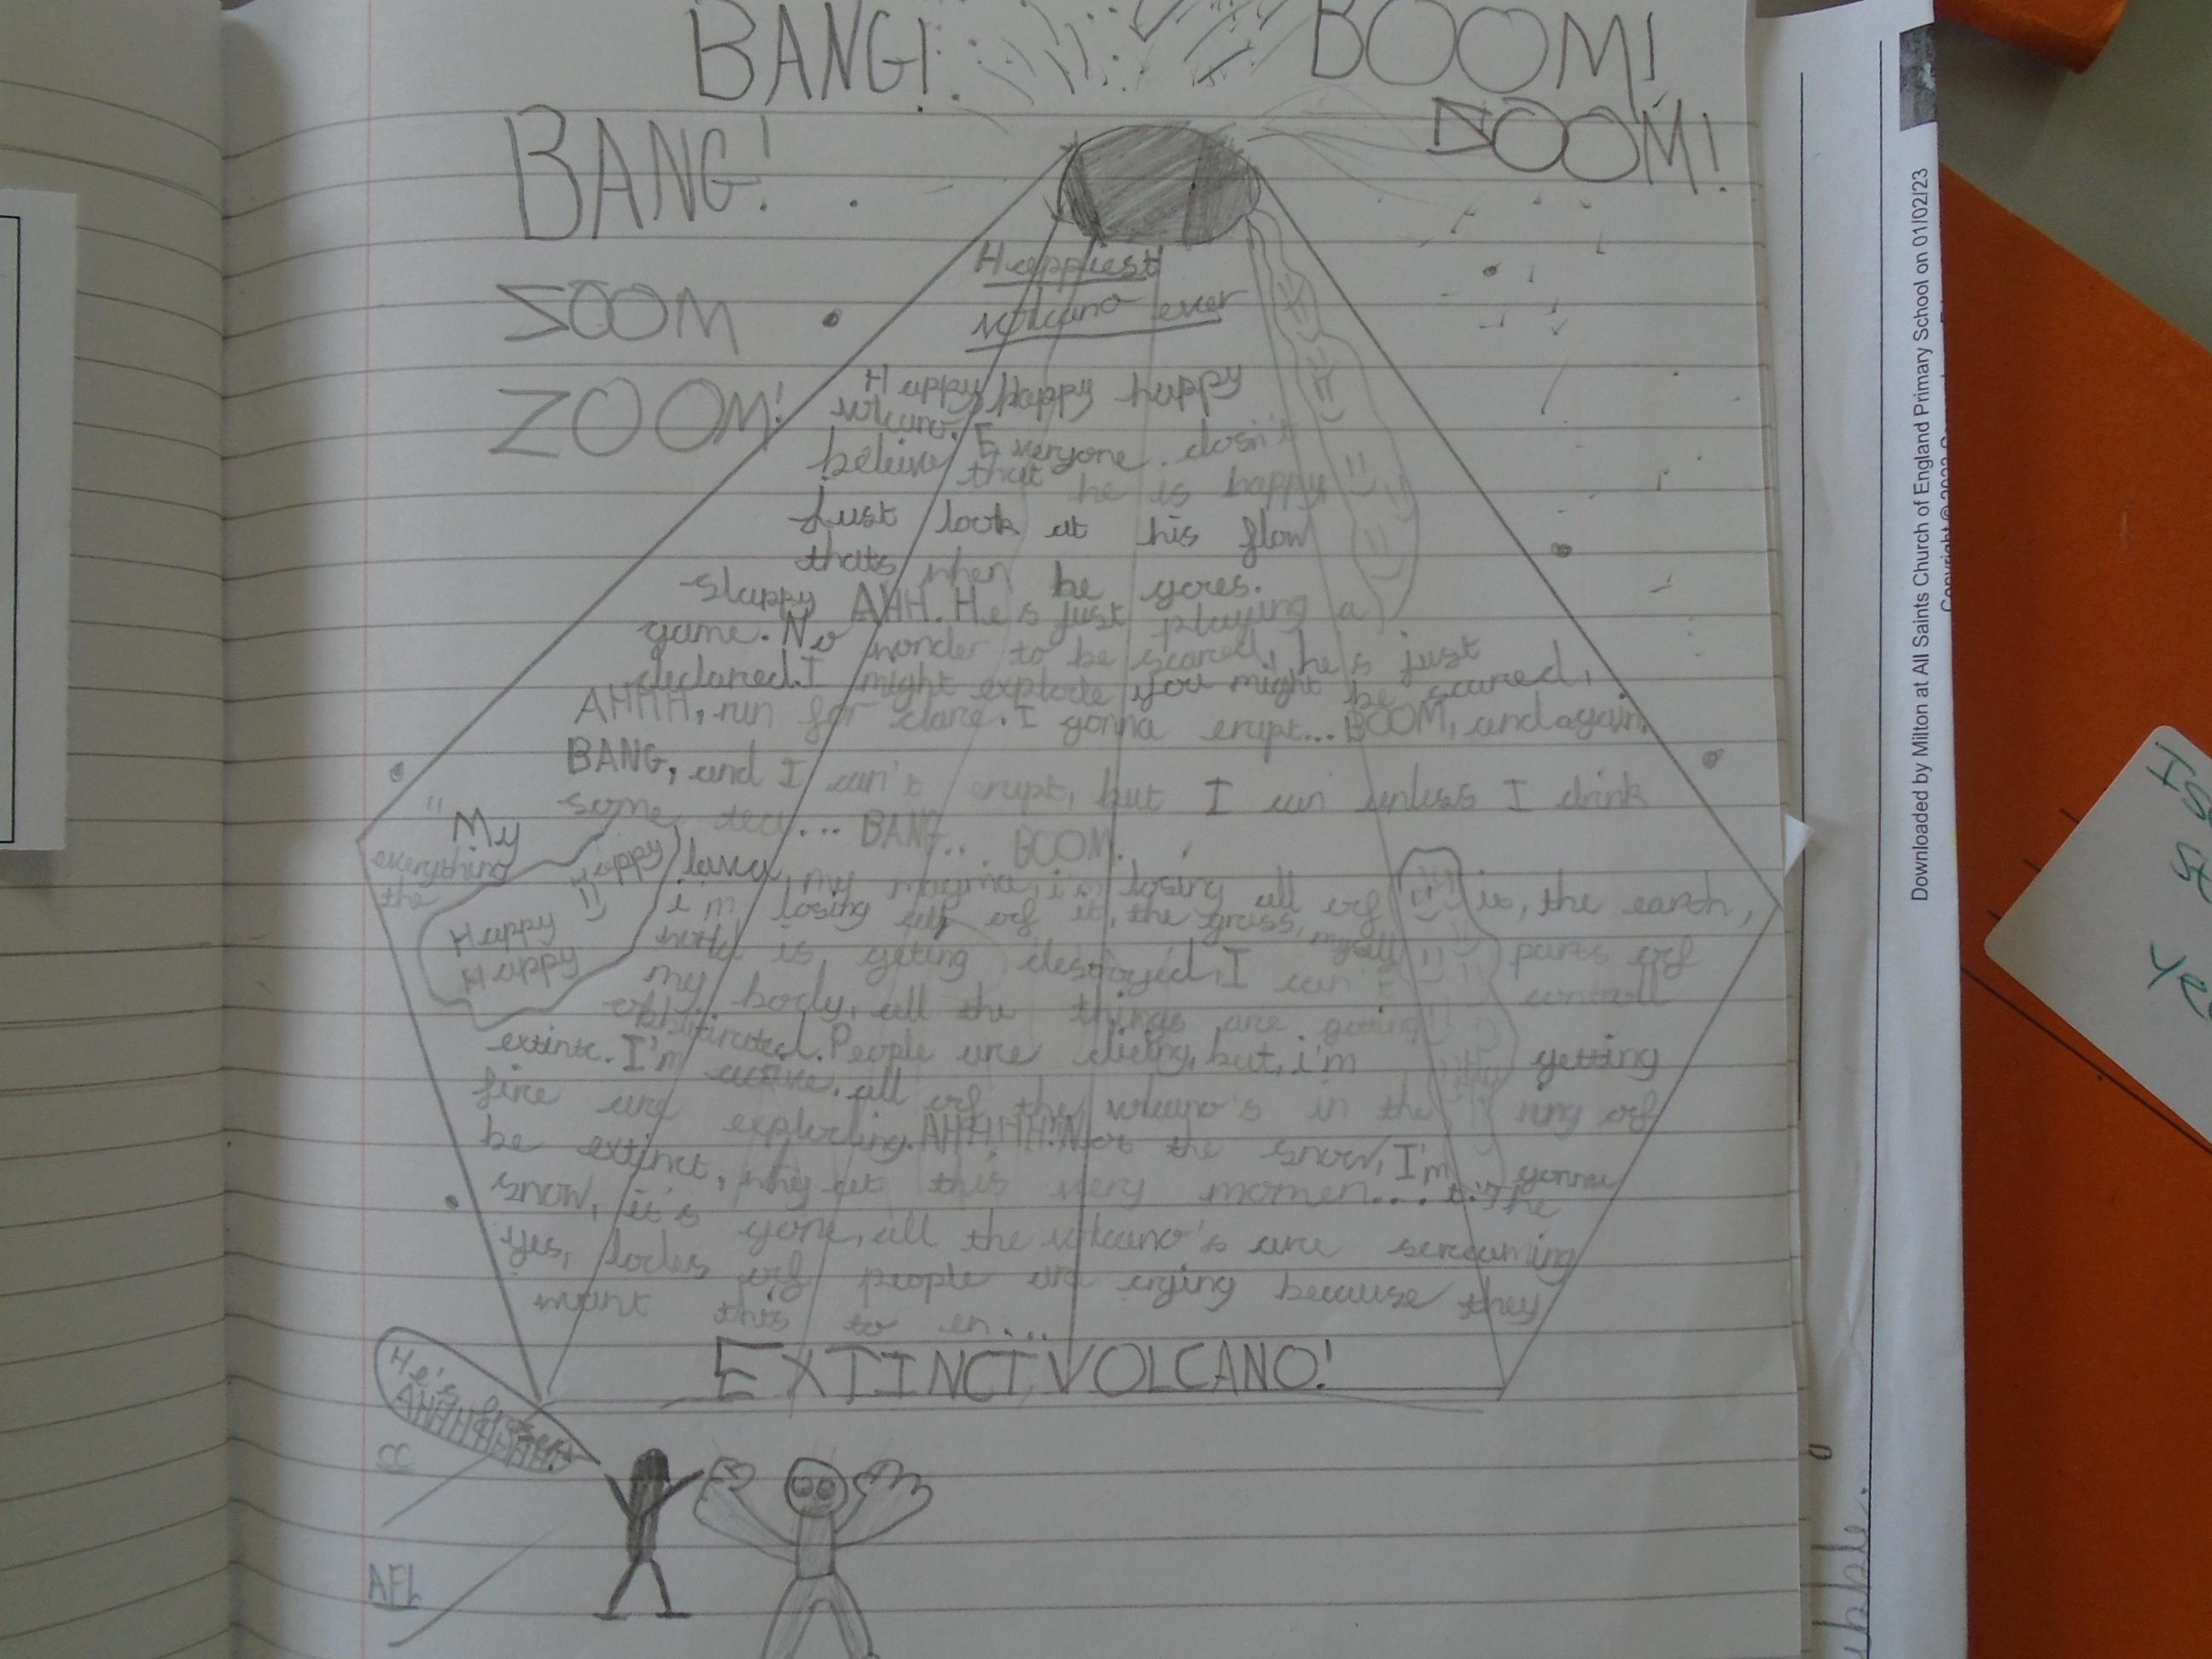 BANG! BOOM!
BANG! NOOM!
SOOM
ZOOM!
Happiest
volcano ever
Happy happy happy
volcano. Everyone dosin't
beleive that he is happy
Just look at his flow
thats when he goes.
slappy AHH. He's just playing a
game. No wonder to be scared, he's just
declared. I might explode you might be scared,
AHHH, run for I gonna erupt... BOOM, and again,
BANG, and I can't erupt, but I can unless I drink
some ... BANG... BOOM.
"My lava, my magma, i'm losing all of it, the earth,
everything i'm losing all of it, the grass, myself parts of
the is geting destroyed, I can't controll
my body, all the things are getting
obliterated. People are dieing, but, i'm getting
extintc. I'm active, all of the volcano's in the ring of
fire are exploding. AHHHHH! Not the snow, I'm gonna
be extinct, why at this very momen... t. The
snow, it's gone, all the volcano's are screaming
yes, lodes of people are crying because they
want this to en...
EXTINCT VOLCANO!
Happy
Happy
Happy
He's
AHHHHHHH
CC
AFL
Downloaded by Milton at All Saints Church of England Primary School on 01/02/23